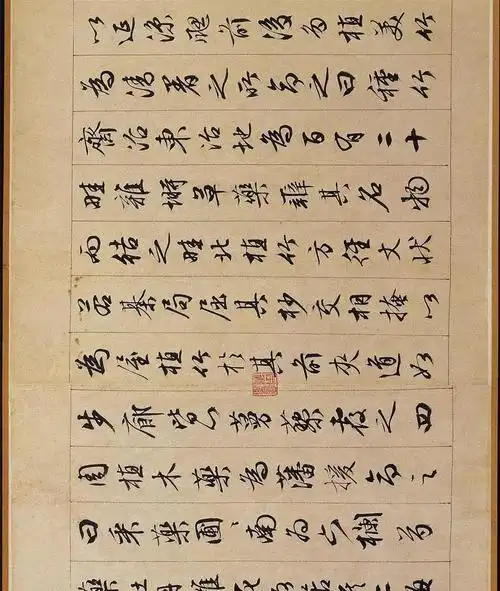 以延涼颸前後多植美竹
為清暑之所命之曰種竹
齋沼東治地為百有二十
畦雜蒔草藥辨其名物
而揭之畦北植竹方徑丈狀
若棊局屈其杪交相掩以
為屋植竹於其前夾道如
步廊皆以蔓藥覆之四
周植木藥為藩援命之
曰采藥圃〻南為六欄芍
藥牡丹雜花各居其二每